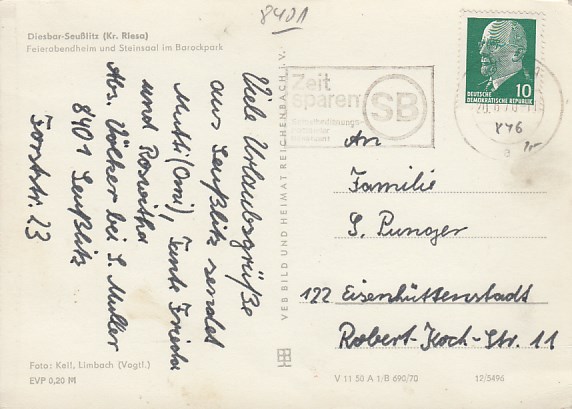 8401
Diesbar-Seußlitz (Kr. Riesa)
Feierabendheim und Steinsaal im Barockpark
Viele Urlaubsgrüße
aus Seußlitz sendet
Mutti (Omi), Tante Frieda
und Roswitha
Abs. Völker bei S. Müller
8401 Seußlitz
Forststr. 23
Foto: Keil, Limbach (Vogtl.)
EVP 0,20 M
VEB BILD UND HEIMAT REICHENBACH i. V.
Zeit
sparen
SB
DEUTSCHE
DEMOKRATISCHE REPUBLIK
10
846
An
Familie
S. Punger
122 Eisenhüttenstadt
Robert-Koch-Str. 11
V 11 50 A 1/B 690/70
12/5496